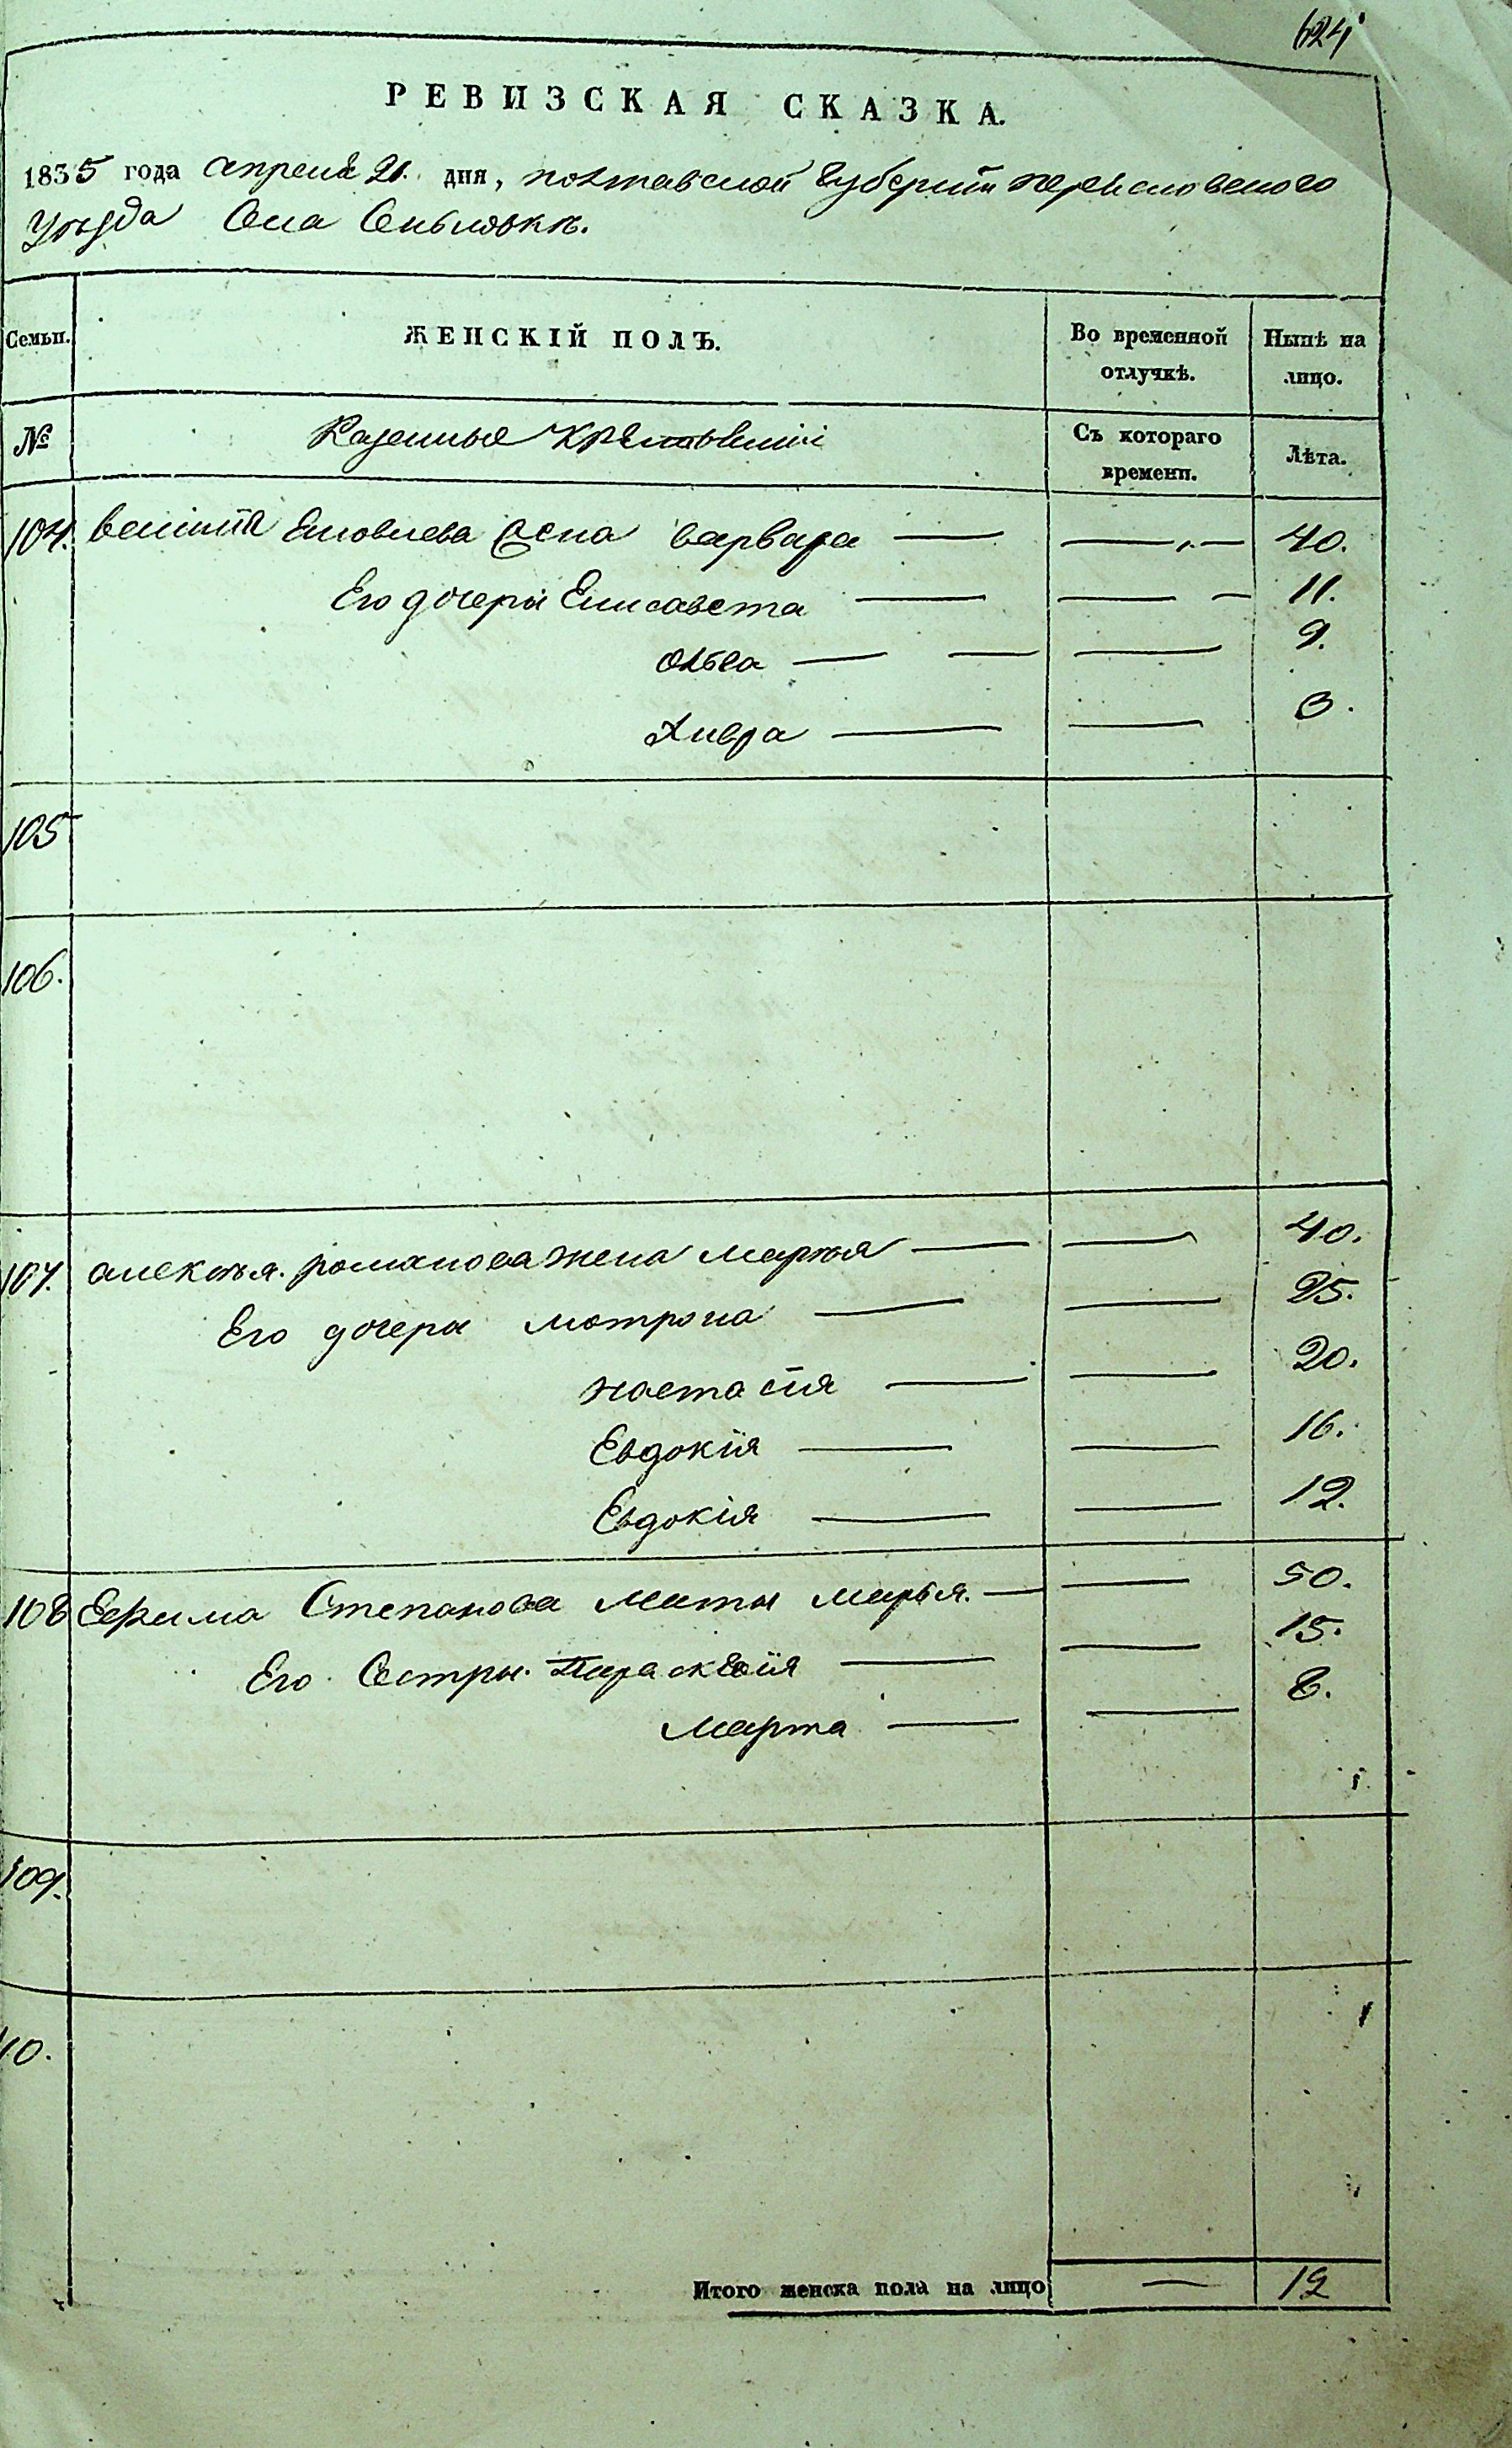 624
РЕВИЗСКАЯ СКАЗКА.
1835 года апреля 21. дня, полтавской Губернии переясловского
уезда Села Сеньковкѣ.
Семьи. ЖЕНСКІЙ ПОЛЪ. Во временной отлучкѣ. Нынѣ на лицо.
№ Казенные Съ котораго времени. Лѣта.
104. Яковлева Жена варвара — — 40.
Его дочери Елисавета — — 11.
— — — 9.
Хивра — — 3.
105
106.
107. алексѣя. романова жена марфа — — 40.
Его дочери мотрона — — 25.
настасія — — 20.
Евдокія — — 16.
Евдокія — — 12.
108 Ефима Степанова мать марья. — — 50.
Его Сестры. Параскевія — — 15.
марфа — — 8.
109.
110.
Итого женска пола на лицо — 12